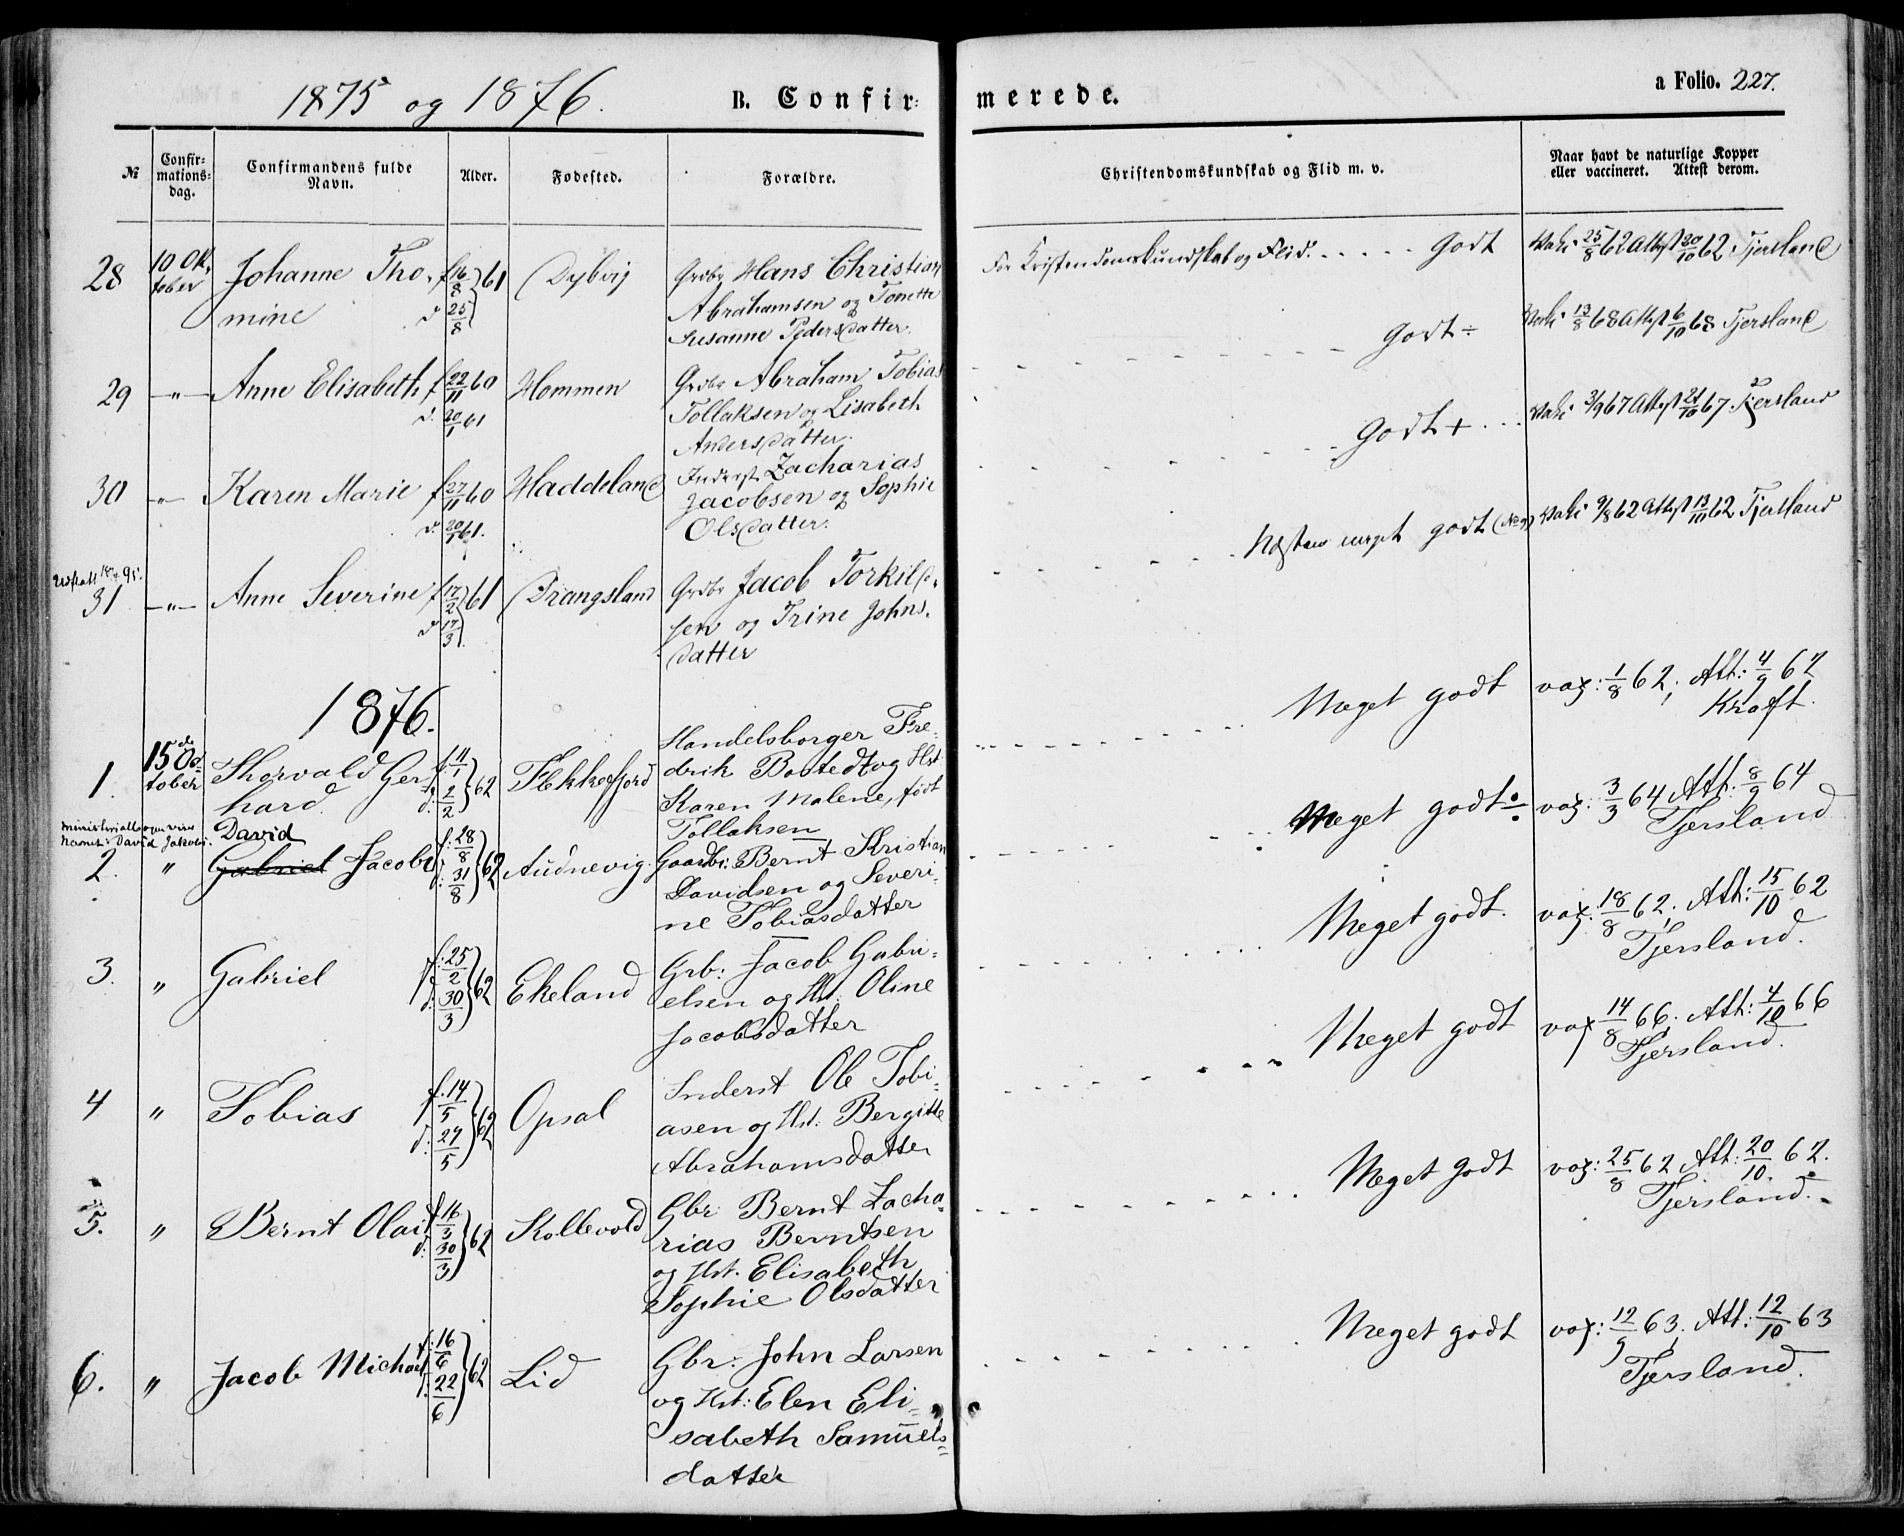 1875 og 1876. B. Confir= merede. a Folio. 227.
№
Confir=
mations=
dag.
Confirmandens fulde
Navn.
Alder.
Fødested.
Forældre.
Christendomskundskab og Flid m. v.
Naar havt de naturlige Kopper
eller vaccineret. Attest derom.
28 10 Ok, Johanne Tho- f 16/8 61 Dybvig Grdbr Hans Christian For Kristendomskundskab og Flid. Godt Vaki 25/8 62 Attest 20/10 62 Tjersland
tober mine d 25/8 Abrahamsen og Tonette
Susanne Pedersdatter.
29 -"- Anne Elisabeth f 22/11 60 Hommen Grdbr Abraham Tobias Godt÷ Vaki 13/8 68 Attest 6/10 68 Tjersland
d. 20/1 61 Tollaksen og Lisabeth
Andersdatter.
30 -"- Karen Marie f 27/11 60 Haddeland Inderst Zacharias Godt+ Vaki 3/9 67 Attest 21/10 67. Tjersland
d. 20/1 61. Jacobsen og Sophie
Olsdatter.
31 -"- Anne Severine f 17/2 61 Drangsland Grdbr Jacob Torkild- Næsten meget godt Vaki 9/8 62 Attest 13/10 62 Tjersland
d 17/3 sen og Trine Johns-
datter
1876.
1. 15de Oc= Thorvald Ger= f. 11/1 62 Flekkefjord Handelsborger Fre= Meget godt vax: 1/8 62; Att: 4/9 62
tober hard. d: 2/2 drik Bostedt og Hst Kraft.
Karen Malene, født
Tollaksen
Navnet: David Jakobs.
David
2. " Gabriel Jacob f: 28/8 62 Audnevig. Gaardbr: Bernt Kristian Meget godt÷ vax: 3/3 64 Att: 8/9 64
d: 31/8 Davidsen og Severi= Tjersland
ne Tobiasdatter
3. " Gabriel f: 25/2 62 Ekeland Grb: Jacob Gabri= Meget godt. vax: 18/8 62; Att: 15/10 62
d: 30/3 elsen og Hst. Oline Tjersland.
Jacobsdatter
4 " Tobias f. 14/5 62 Opsal Inderst Ole Tobi= Meget godt vax 14/8 66; Att: 4/10 66
d: 29/5 asen og Hst. Bergitte Tjersland.
Abrahamsdatter
5. " Bernt Olai f: 16/3 62 Kollevold Gbr Bernt Zacha= Meget godt vax: 25/8 62 Att: 20/10. 62.
d: 30/3 rias Berntsen Tjersland.
og Hst. Elisabeth
Sophie Olsdatter
6. " Jacob Michael f: 16/6 62 Lid Gbr. John Larsen Meget godt vax: 12/9 63. Att: 12/10 63
22/6 og Hst: Elen Eli= Tjersland.
sabeth Samuels=
datter